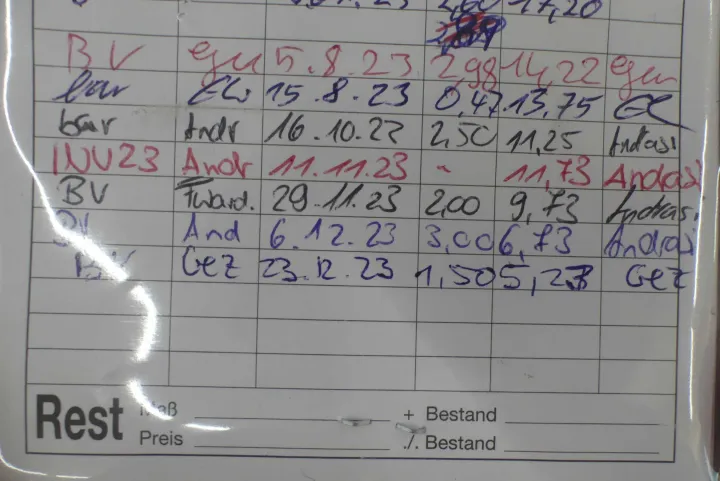 17,20
BV gen 5.8.23 2,98 14,22 gen
bar 15.8.23 0,47 13,75
bar Andr 16.10.23 2,50 11,25 Andrasi
INV23 Andr 11.11.23 - 11,73 Andrasi
BV 29.11.23 2,00 9,73 Andrasi
BV And 6.12.23 3,00 6,73 Andrasi
BV Gez 23.12.23 1,50 5,23 Gez
Rest Maß + Bestand
Preis ./. Bestand